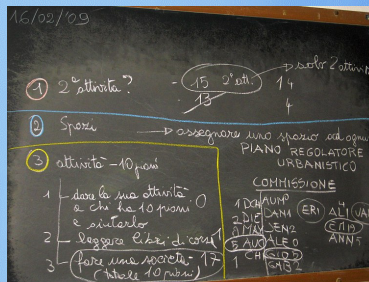 16/02/'09
① 2ª attività?
15 2ª att.
solo 2 attività
13
14
4
② Spazi → assegnare uno spazio ad ogni
PIANO REGOLATORE
URBANISTICO
③ attività - 10 piani
1 - dare la sua attività 0
a chi ha 10 piani
e aiutarlo
2 - leggere libri di corsa 1
3 - fare una società 17
(totale 10 piani)
COMMISSIONE
1 DCH AUM
2 DIE DAN1 ERI ALI
MAY SEN2
5 AUO ALEO ANN
1 CH